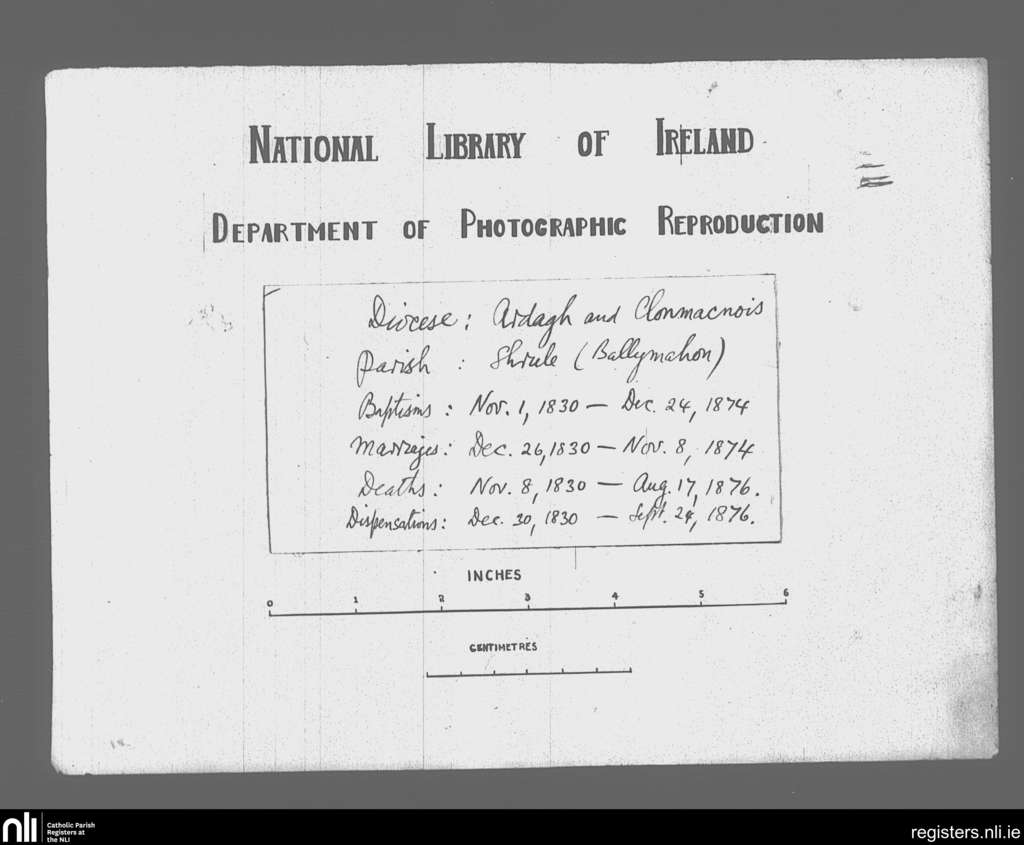 NATIONAL LIBRARY OF IRELAND
DEPARTMENT OF PHOTOGRAPHIC REPRODUCTION
Diocese: Ardagh and Clonmacnois
Parish : Shrule (Ballymahon)
Baptisms : Nov. 1, 1830 — Dec. 24, 1874
Marriages: Dec. 26, 1830 — Nov. 8, 1874
Deaths: Nov. 8, 1830 — Aug. 17, 1876.
Dispensations: Dec. 30, 1830 — Sept. 24, 1876.
INCHES
0 1 2 3 4 5 6
CENTIMETRES
nli
Catholic Parish
Registers at
the NLI
registers.nli.ie